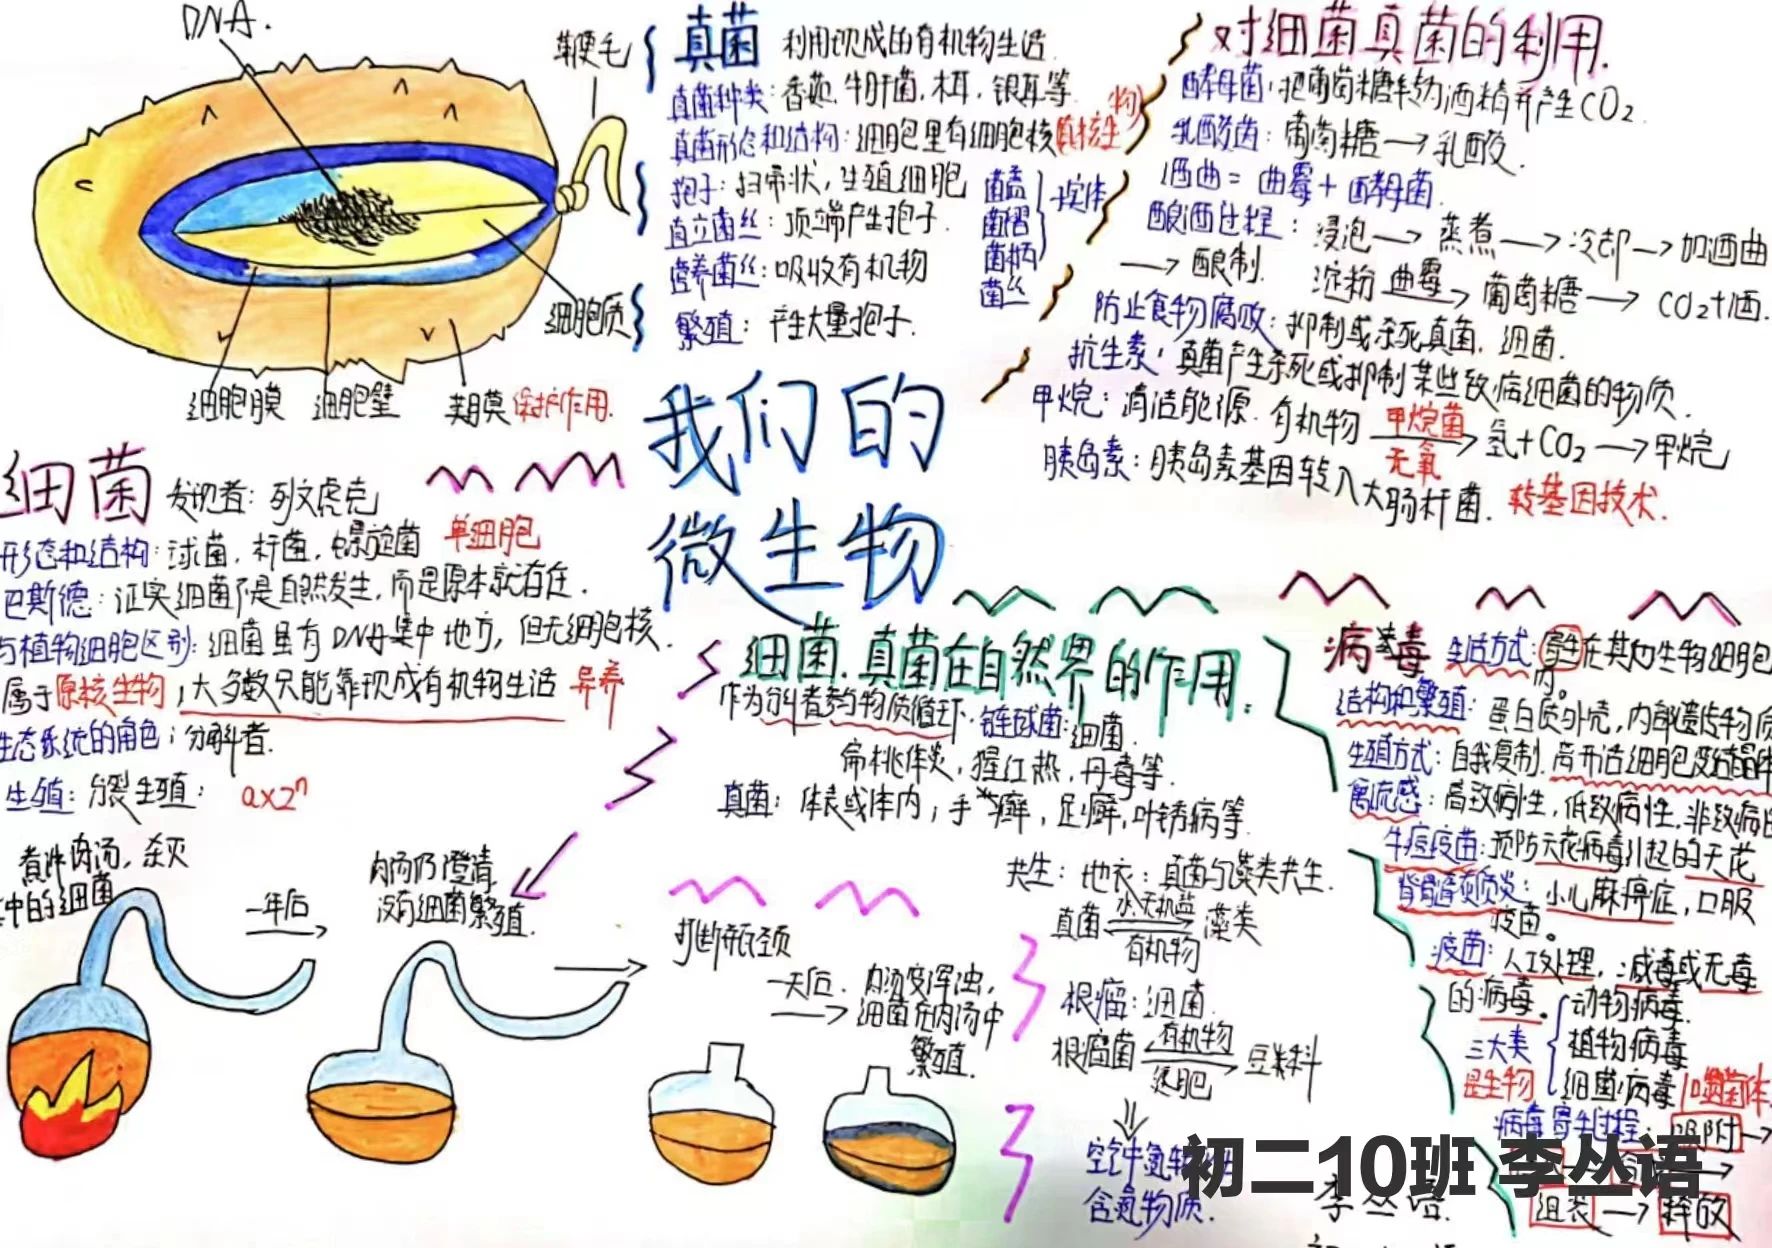 DNA.
鞭毛
细胞质
细胞膜
细胞壁
荚膜 保护作用.
真菌 利用现成的有机物生活.
真菌种类: 香菇, 牛肝菌, 木耳, 银耳等
真菌形态和结构: 细胞里有细胞核 (真核生物)
孢子: 扫帚状, 生殖细胞
直立菌丝: 顶端产生孢子.
营养菌丝: 吸收有机物
繁殖: 产生大量孢子.
菌盖
菌褶
菌柄
菌丝
子实体
对细菌真菌的利用.
酵母菌: 把葡萄糖转为酒精并产生CO2.
乳酸菌: 葡萄糖→乳酸.
酒曲 = 曲霉 + 酵母菌.
酿酒过程: 浸泡→蒸煮→冷却→加酒曲
→酿制. 淀粉 曲霉→ 葡萄糖→CO2+酒.
防止食物腐败: 抑制或杀死真菌. 细菌.
抗生素: 真菌产生杀死或抑制某些致病细菌的物质.
甲烷: 清洁能源. 有机物 甲烷菌 无氧→ 氢+CO2→甲烷
胰岛素: 胰岛素基因转入大肠杆菌. 转基因技术.
我们的
微生物
细菌 发现者: 列文虎克
形态和结构: 球菌, 杆菌, 螺旋菌 单细胞
巴斯德: 证实细菌不是自然发生, 而是原本就存在.
与植物细胞区别: 细菌虽有DNA集中地方, 但无细胞核.
属于原核生物; 大多数只能靠现成有机物生活 异养
生态系统的角色: 分解者.
生殖: 分裂生殖: a×2ⁿ
煮沸肉汤, 杀灭
其中的细菌
一年后
肉汤仍澄清
没有细菌繁殖.
打断瓶颈
一天后. 肉汤变浑浊,
细菌在肉汤中
繁殖.
细菌.真菌在自然界的作用.
作为分解者参与物质循环. 链球菌: 细菌.
扁桃体炎, 猩红热, 丹毒等.
真菌: 体表或体内; 手癣, 足癣, 叶锈病等.
共生: 地衣: 真菌与藻类共生.
真菌 水无机盐 有机物 藻类
根瘤: 细菌.
根瘤菌 有机物 氮肥 豆科
空气中氮转
含氮物质.
病毒 生活方式: 寄生在其他生物细胞
内。
结构和繁殖: 蛋白质外壳, 内部遗传物质
生殖方式: 自我复制. 离开活细胞变结晶体
禽流感: 高致病性, 低致病性, 非致病性
牛痘疫苗: 预防天花病毒引起的天花
脊髓灰质炎: 小儿麻痹症, 口服
疫苗。
疫苗: 人工处理, 减毒或无毒
的病毒.
三大类
是生物
动物病毒.
植物病毒
细菌病毒 口噬菌体
病毒寄生过程: 吸附→
组装→释放
李丛语.
初二10班 李丛语